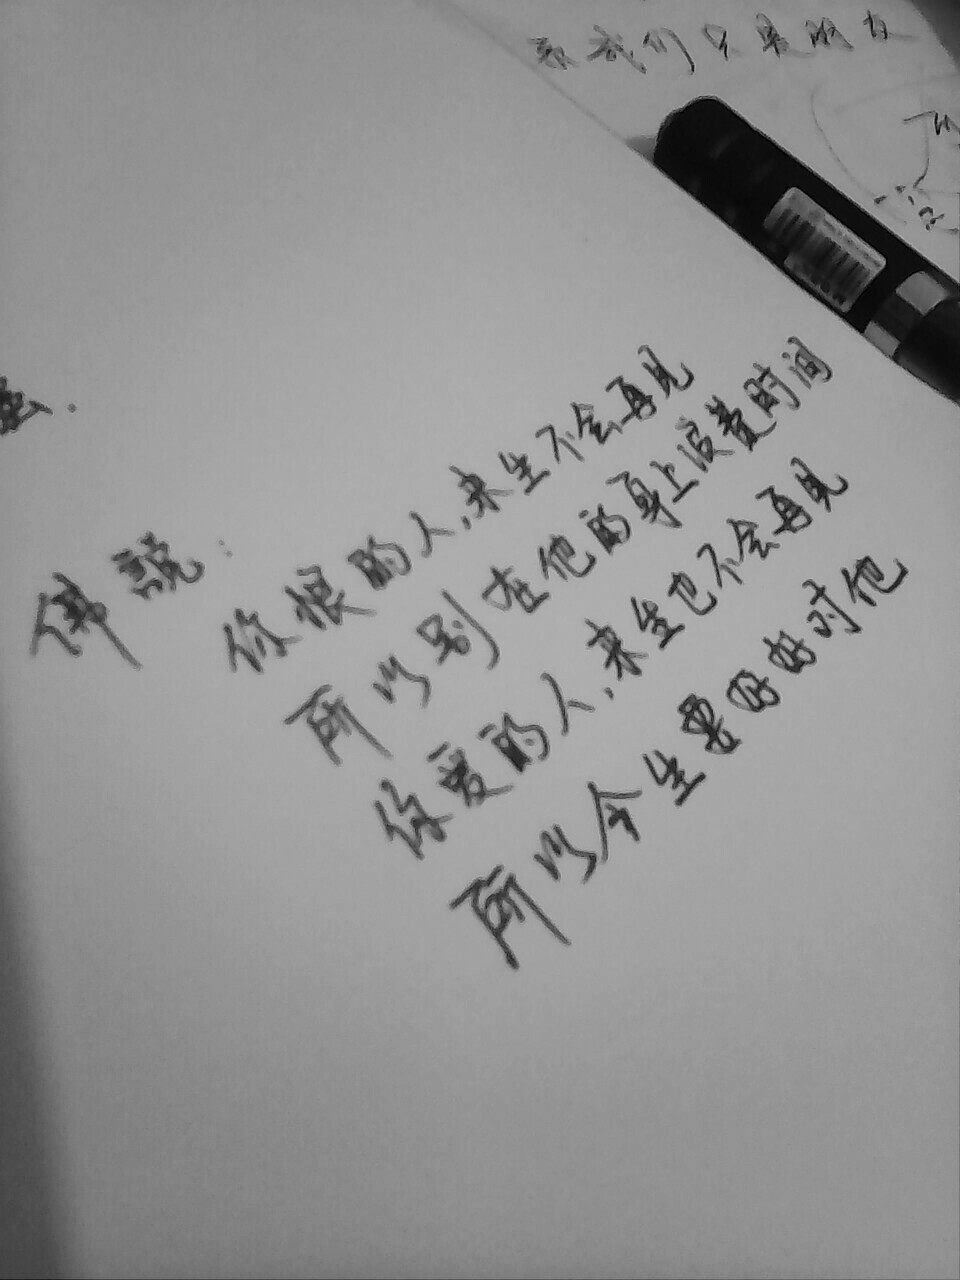 我们只是朋友
佛說：
你恨的人，来生不会再见
所以别在他的身上浪费时间
你爱的人，来生也不会再见
所以今生要好好对他